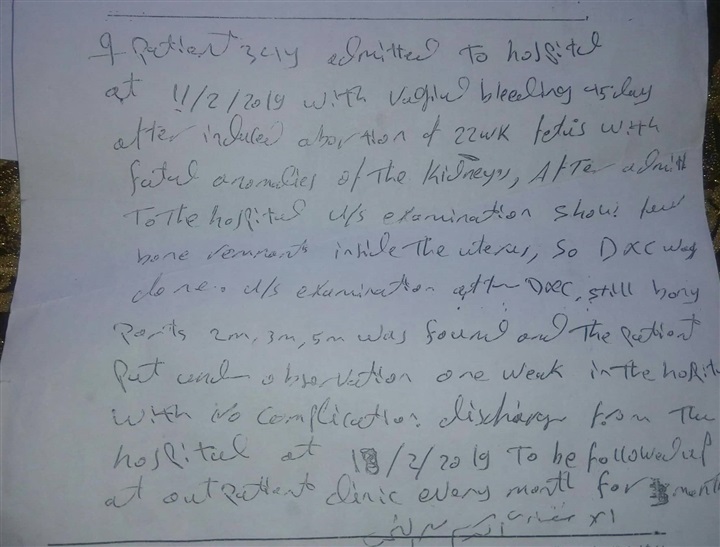 patient 34y admitted to hospital
at 11/2/2019 with vaginal bleeding 45 day
after induced abortion of 22wk fetus with
fatal anomalies of the Kidneys, After admitt
To the hospital u/s examination show: few
bone remnants inside the uterus, So D&C was
done. u/s examination after D&C, still bony
Parts 2m, 3m, 5m was found and the patient
Put under observation one weak in the hospit
with No complication. discharge from the
hospital at 18/2/2019 To be followed up
at outpatient clinic every month for 3 month
x1